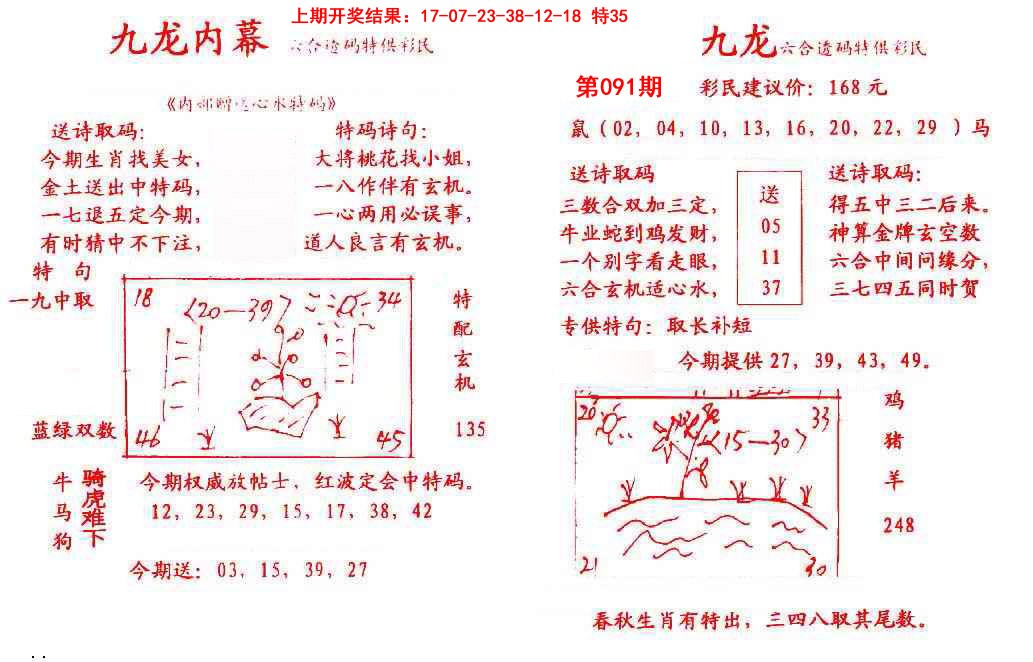 上期开奖结果：17-07-23-38-12-18 特35
九龙内幕 六合透码特供彩民
《内部赠送心水特码》
送诗取码：
今期生肖找美女，
金土送出中特码，
一七退五定今期，
有时猜中不下注，
特码诗句：
大将桃花找小姐，
一八作伴有玄机。
一心两用必误事，
道人良言有玄机。
特 句
一九中取
蓝绿双数
18
〈20—39〉
34
46
45
特
配
玄
机
135
牛
马
狗
骑
虎
难
下
今期权威放帖士，红波定会中特码。
12，23，29，15，17，38，42
今期送：03，15，39，27
九龙 六合透码特供彩民
第091期 彩民建议价：168 元
鼠（02，04，10，13，16，20，22，29 ）马
送诗取码
三数合双加三定，
牛业蛇到鸡发财，
一个别字看走眼，
六合玄机适心水，
送
05
11
37
送诗取码：
得五中三二后来。
神算金牌玄空数
六合中间问缘分，
三七四五同时贺
专供特句：取长补短
今期提供 27，39，43，49。
20
33
〈15—30〉
21
30
鸡
猪
羊
248
春秋生肖有特出，三四八取其尾数。